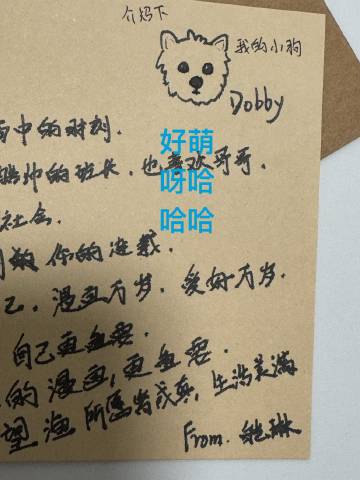 介绍下
我的小狗
Dobby
好萌
呀哈
哈哈
中的时刻.
帅的班长，也喜欢哥哥.
社会.
你的连载.
己，漫画万岁，爱好万岁.
自己更重要.
的漫画，更重要.
望 所愿皆成真，生活美满
From. 琳